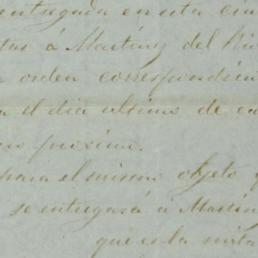 entregada en esta ciu
tas á Martinez del Rio
orden correspondien
el dia ultimo de ca
proximo.
para el mismo objeto q
se entregará á Martin
que es la mita